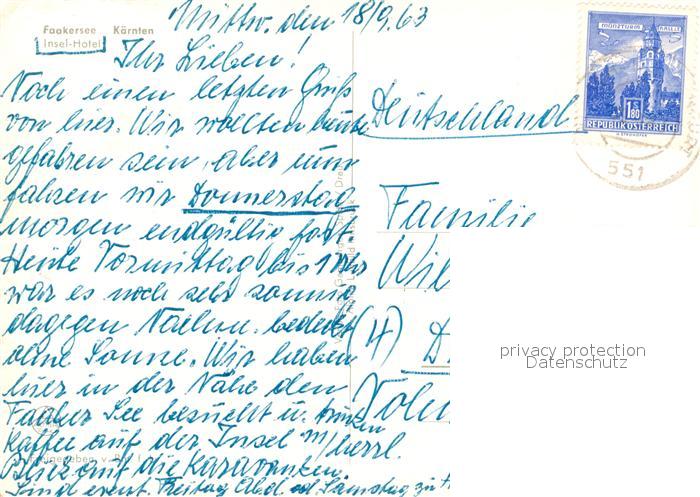 Faakersee Kärnten
Insel-Hotel
Mittw. den 18/9.63
Ihr Lieben!
Noch einen letzten Gruß
von hier. Wir wollten heute
gefahren sein, aber nun
fahren wir Donnerstag
morgen endgültig fort
Heute Vormittag bis 1 Uhr
war es noch sehr sonnig
dagegen Nachm. bedeckt
ohne Sonne. Wir haben
hier in der Nähe den
Faaker See besucht u. trinken
Kaffee auf der Insel m/ herrl.
Blick auf die Karawanken
Sind event. Freitag Abd. od Samstag zu
MÜNZTURM HALL
1.80
REPUBLIK ÖSTERREICH
551
Deutschland
Familie
Wil
(4) D
privacy protection
Datenschutz